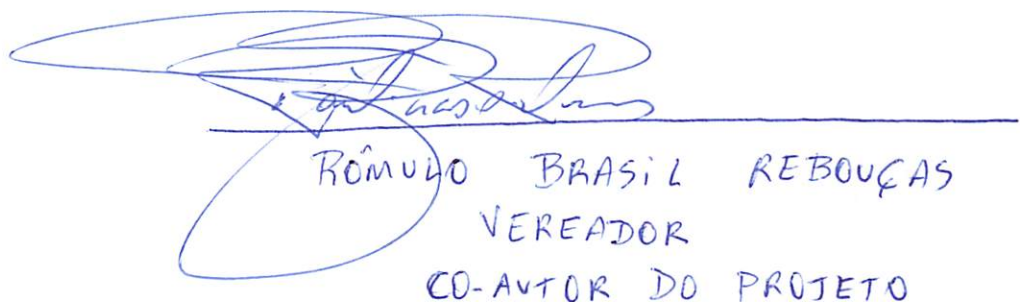 RÔMULO BRASIL REBOUÇAS
VEREADOR
CO-AUTOR DO PROJETO